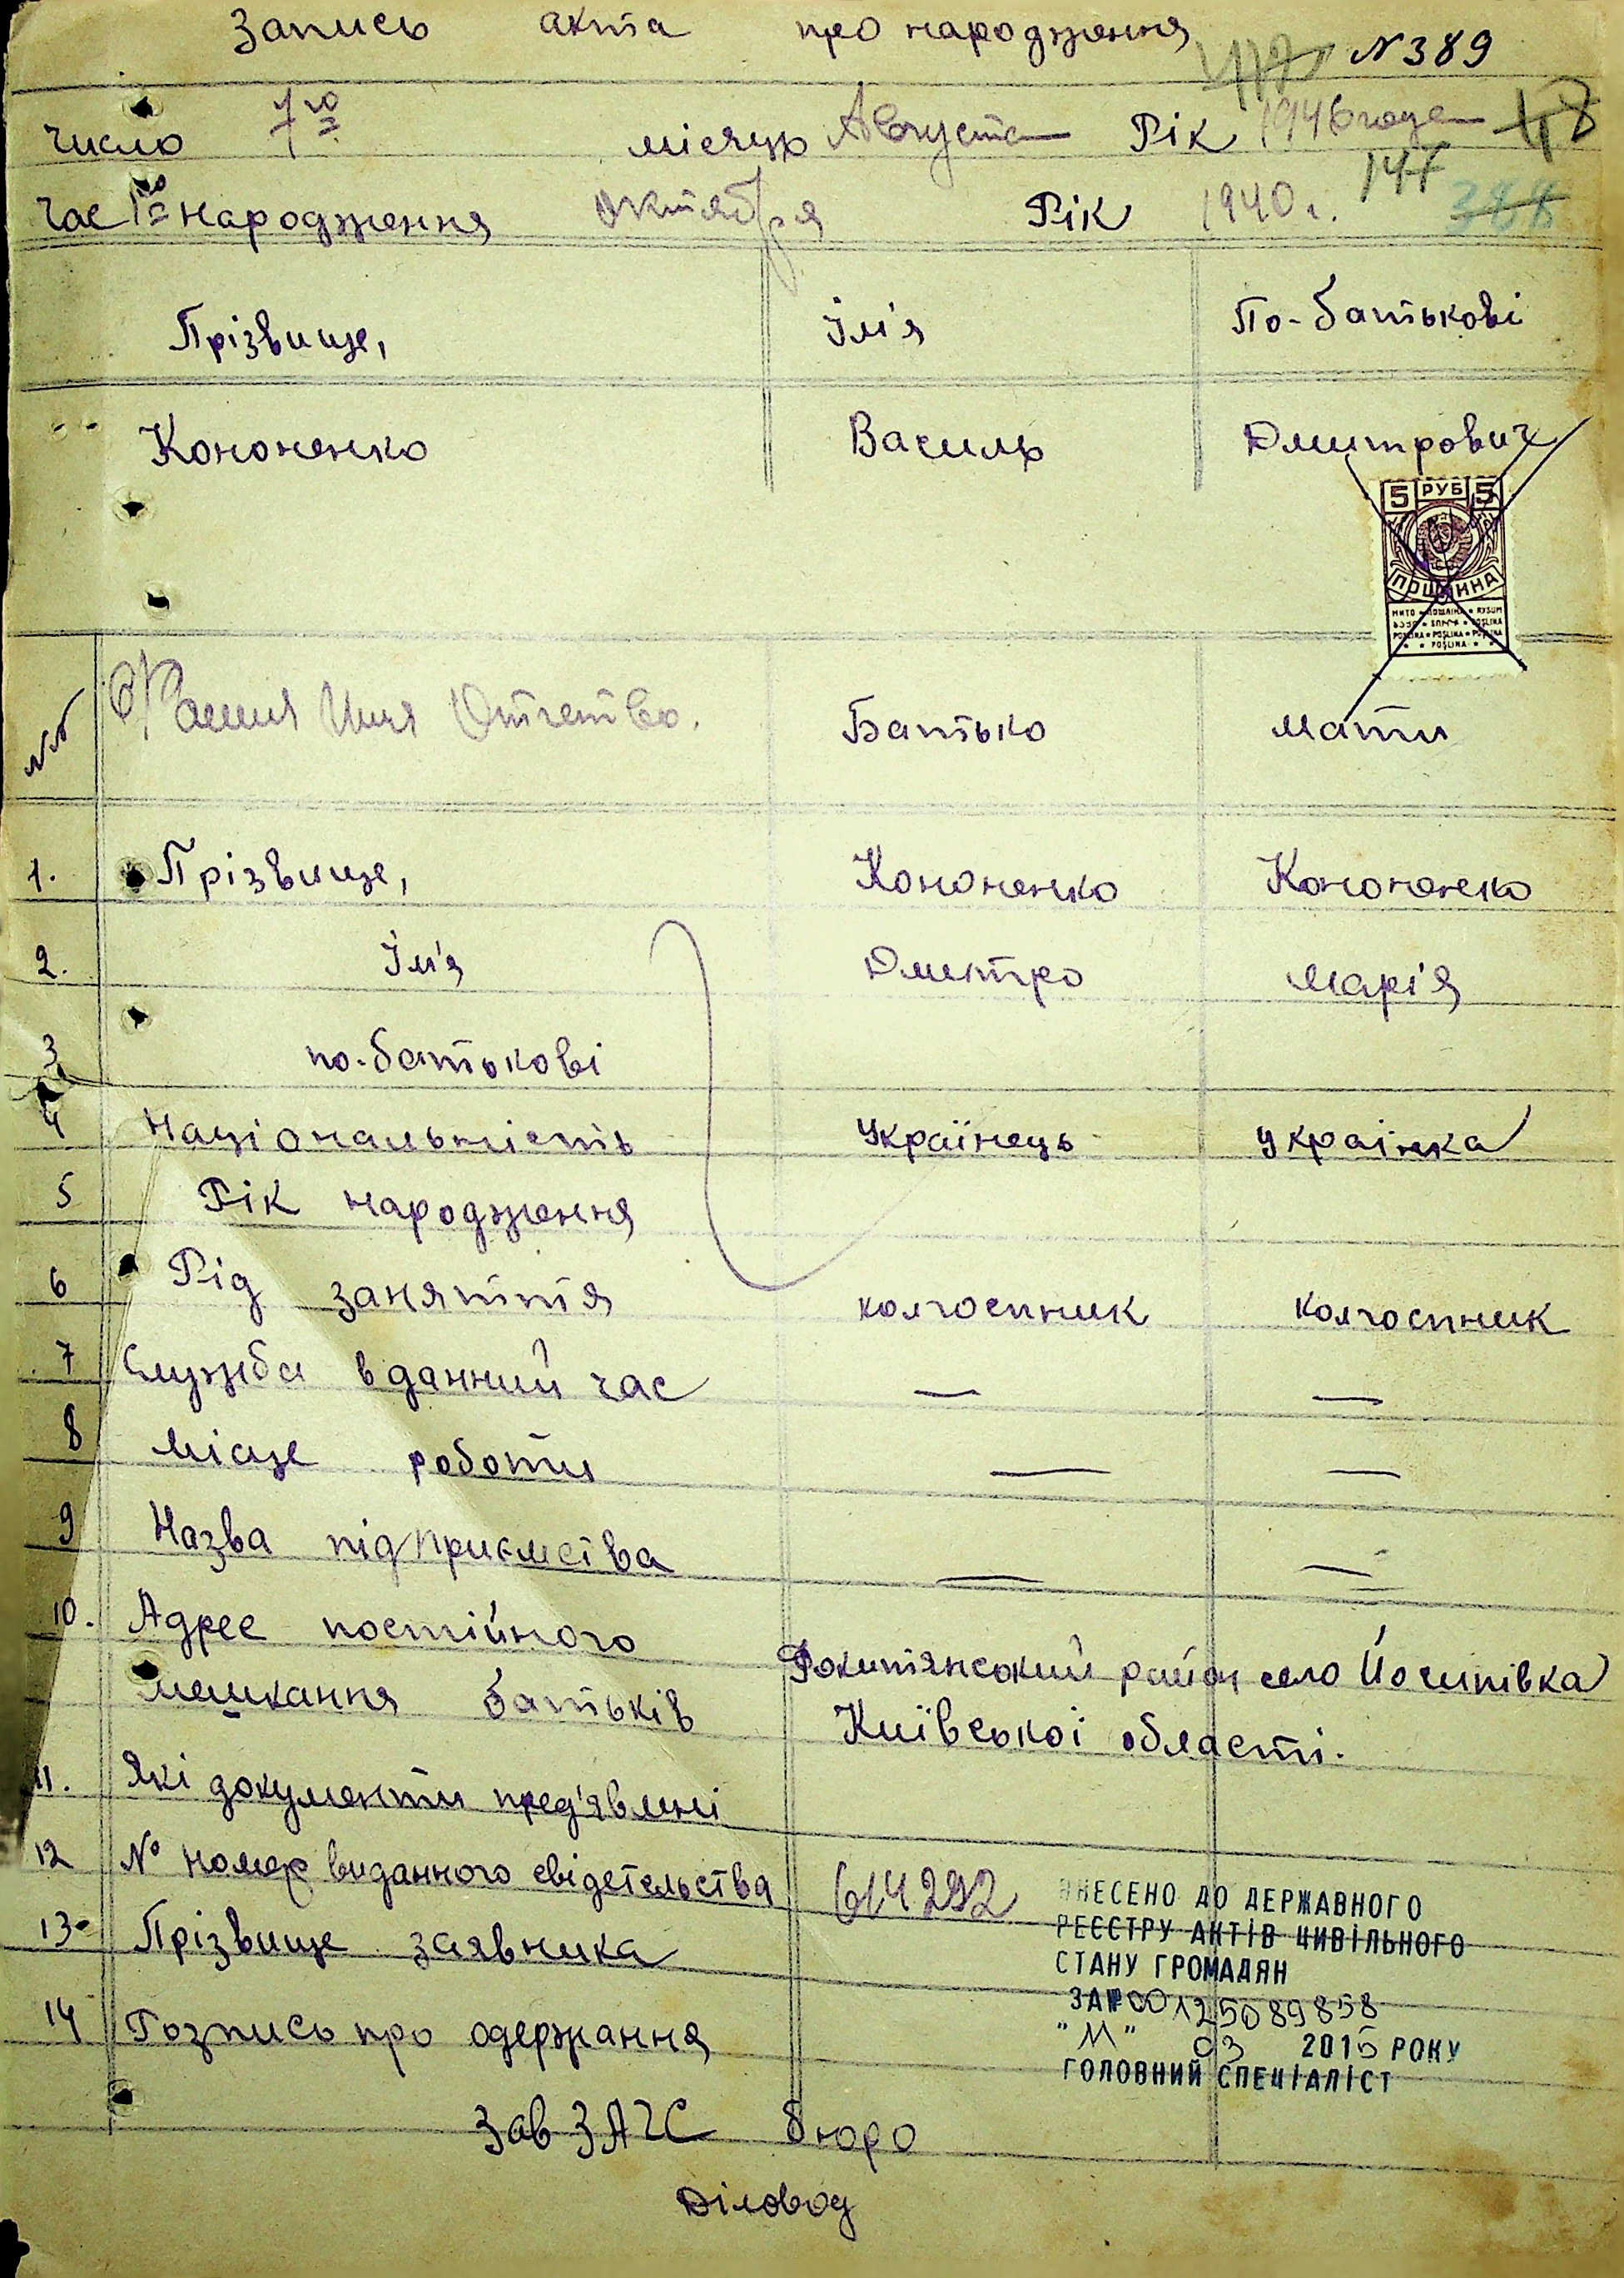 Запись акта про народження
N 389
число 7го місяць Августа Рік 1946 года
147 388
час 1го народження октября Рік 1940 г.
Прізвище, Ім'я По-батькові
Кононенко Василь Дмитрович
5 РУБ 5
ПОШЛИННА
№№ Фамилия Имя Отчество. Батько Мати
1. Прізвище, Кононенко Кононенко
2. Ім'я Дмитро Марія
3 по-батькові
4 Національність Українець українка
5 Рік народження
6 Рід заняття колгоспник колгоспник
7 Служба в данний час — —
8 Місце роботи — —
9 Назва підприємства — —
10. Адрес постійного Рокитянський район село Йосипівка
мешкання батьків Київської області.
11. Які документи пред'явлені
12 № номер виданного свідетельства 614292
13 Прізвище заявника
14 Розпись про одержання
ВНЕСЕНО ДО ДЕРЖАВНОГО
РЕЄСТРУ АКТІВ ЦИВІЛЬНОГО
СТАНУ ГРОМАДЯН
ЗА № 00125089858
"11" 03 2015 РОКУ
ГОЛОВНИЙ СПЕЦІАЛІСТ
Зав ЗАГС бюро
Діловод